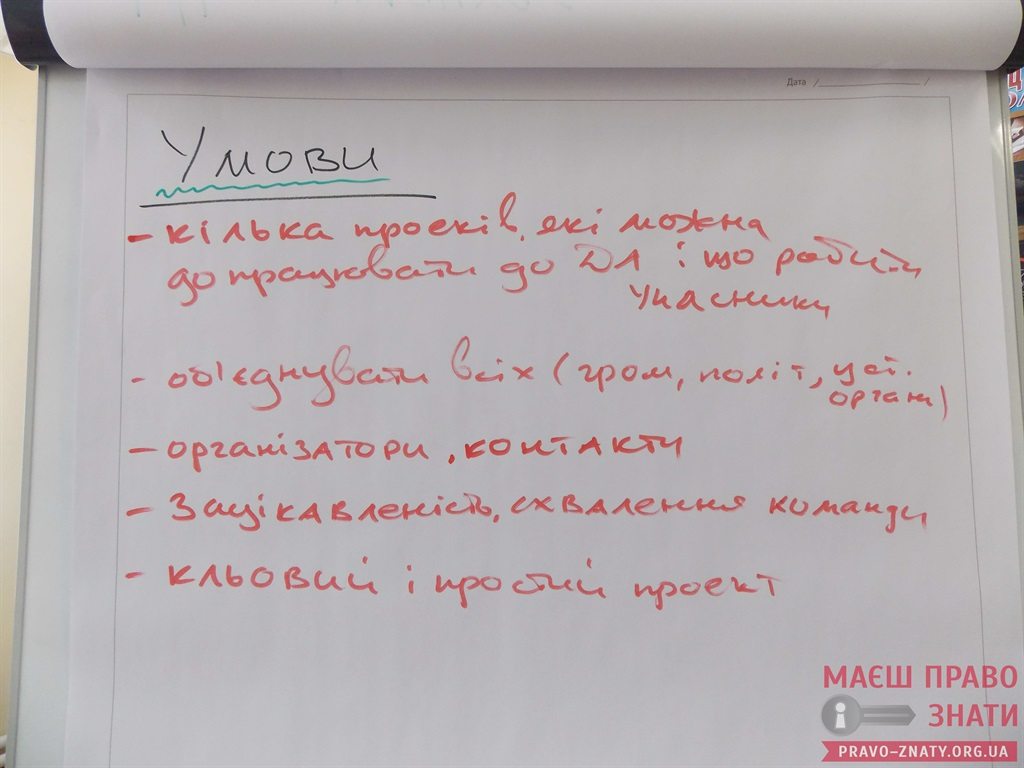 Дата
Умови
- кілька проєків, які можна
допрацювати до ДЛ і що робити
учасники
- об'єднувати всіх (гром, політ, усі.
органи)
- організатори, контакти
- Зацікавленість, схвалення команди
- кльовий і простий проект
МАЄШ ПРАВО
ЗНАТИ
PRAVO-ZNATY.ORG.UA